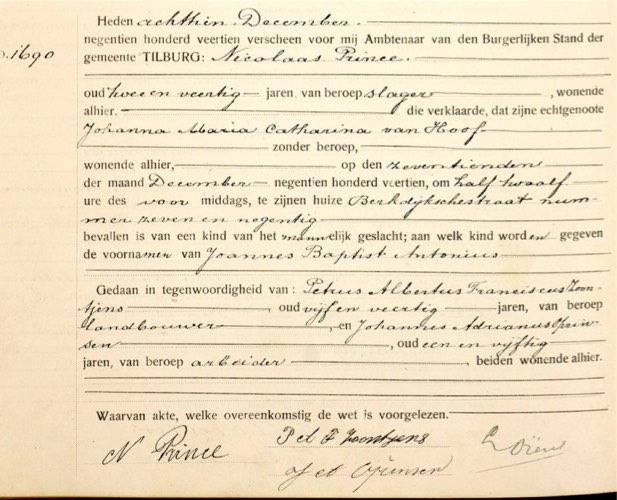 Heden achttien December
o. 1690
negentien honderd veertien verscheen voor mij Ambtenaar van den Burgerlijken Stand der
gemeente TILBURG: Nicolaas Prince
oud twee en veertig jaren, van beroep slager, wonende
alhier. die verklaarde, dat zijne echtgenoote
Johanna Maria Catharina van Hoof
zonder beroep,
wonende alhier, op den zeventienden
der maand December negentien honderd veertien, om half twaalf
ure des voor middags, te zijnen huize Berkdijkschestraat num-
mer zeven en negentig
bevallen is van een kind van het mannelijk geslacht; aan welk kind worden gegeven
de voornamen van Joannes Baptist Antonius
Gedaan in tegenwoordigheid van: Petrus Albertus Franciscus Zoon-
tjens, oud vijf en veertig jaren, van beroep
landbouwer, en Johannes Adrianus Oprin-
sen, oud een en vijftig
jaren, van beroep arbeider, beiden wonende alhier.
Waarvan akte, welke overeenkomstig de wet is voorgelezen.
N Prince
P A F Zoontjens